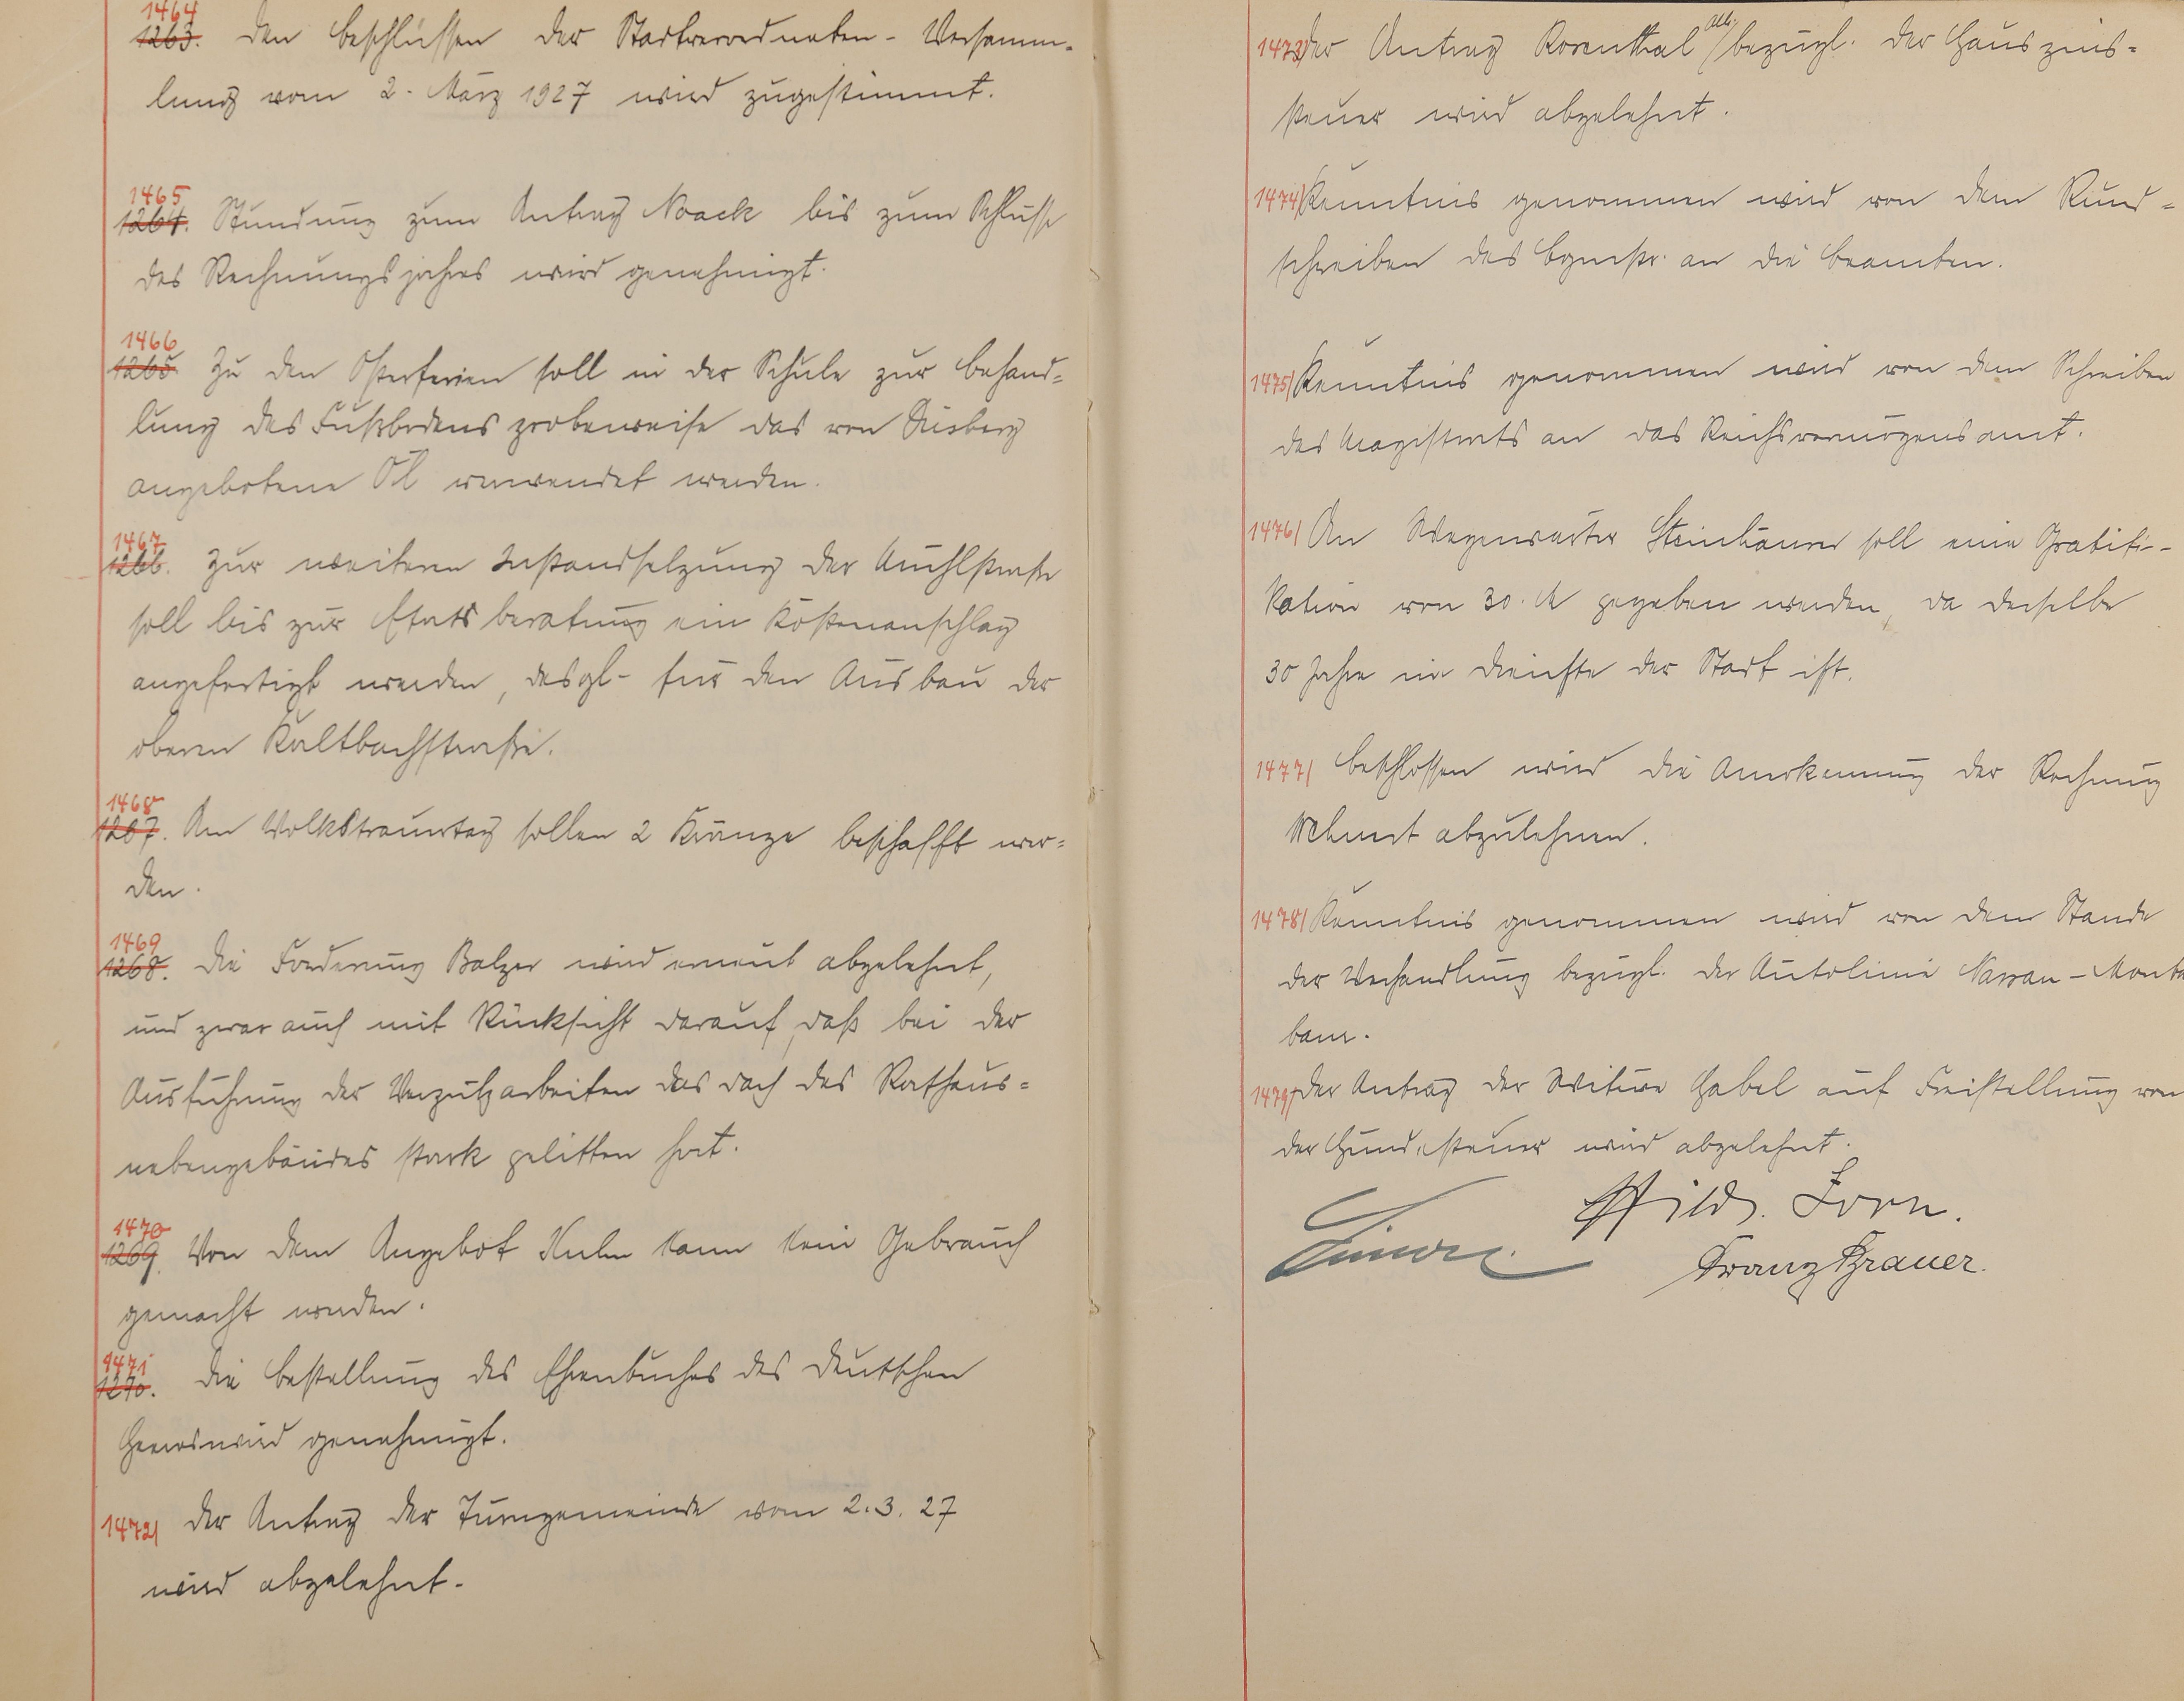 1464
1263. Den Beschlüssen der Stadtverordneten-Versamm-
lung vom 2. März 1927 wird zugestimmt.
1465
1264. Stundung zum Antrag Noack bis zum Schlusse
des Rechnungsjahres wird genehmigt.
1466
1265. Zu den Osterferien soll in der Schule zur Behand-
lung des Fußbodens probeweise das von Duisberg
angebotene Öl verwendet werden.
1467
1266. Zur weiteren Instandsetzung der Mühlstraße
soll bis zur Etatsberatung ein Kostenanschlag
angefertigt werden, desgl. für den Ausbau der
oberen Kaltbachstraße.
1468
1267. Am Volkstrauertag sollen 2 Kränze beschafft wer-
den.
1469
1268. Die Forderung Balzer wird erneut abgelehnt,
und zwar auch mit Rücksicht darauf, daß bei der
Ausführung der Verputzarbeiten das Dach des Rathaus-
nebengebäudes stark gelitten hat.
1470
1269. Von dem Angebot kann kein Gebrauch
gemacht werden.
1471
1270. Die Bestellung des Ehrenbuches des Deutschen
Heeres wird genehmigt.
1472) Der Antrag der Turngemeinde vom 2.3.27
wird abgelehnt.
1473) Der Antrag Rosenthal bezügl. der Hauszins-
steuer wird abgelehnt.
1474) Kenntnis genommen wird von dem Rund-
schreiben des Bgmstr. an die Beamten.
1475) Kenntnis genommen wird von dem Schreiben
des Magistrats an das Reichsvermögensamt.
1476) An Wegewärter Steinhäuser soll eine Gratifi-
kation von 30. M gegeben werden, da derselbe
30 Jahre im Dienste der Stadt ist.
1477) Beschlossen wird die Anerkennung der Rechnung
Mehnert abzulehnen.
1478) Kenntnis genommen wird von dem Stande
der Verhandlung bezügl. der Autolinie Nassau-Monta
baur.
1479) Der Antrag der Witwe Gabel auf Freistellung von
der Hundesteuer wird abgelehnt.
Hild. Zorn.
Franz Brauer.